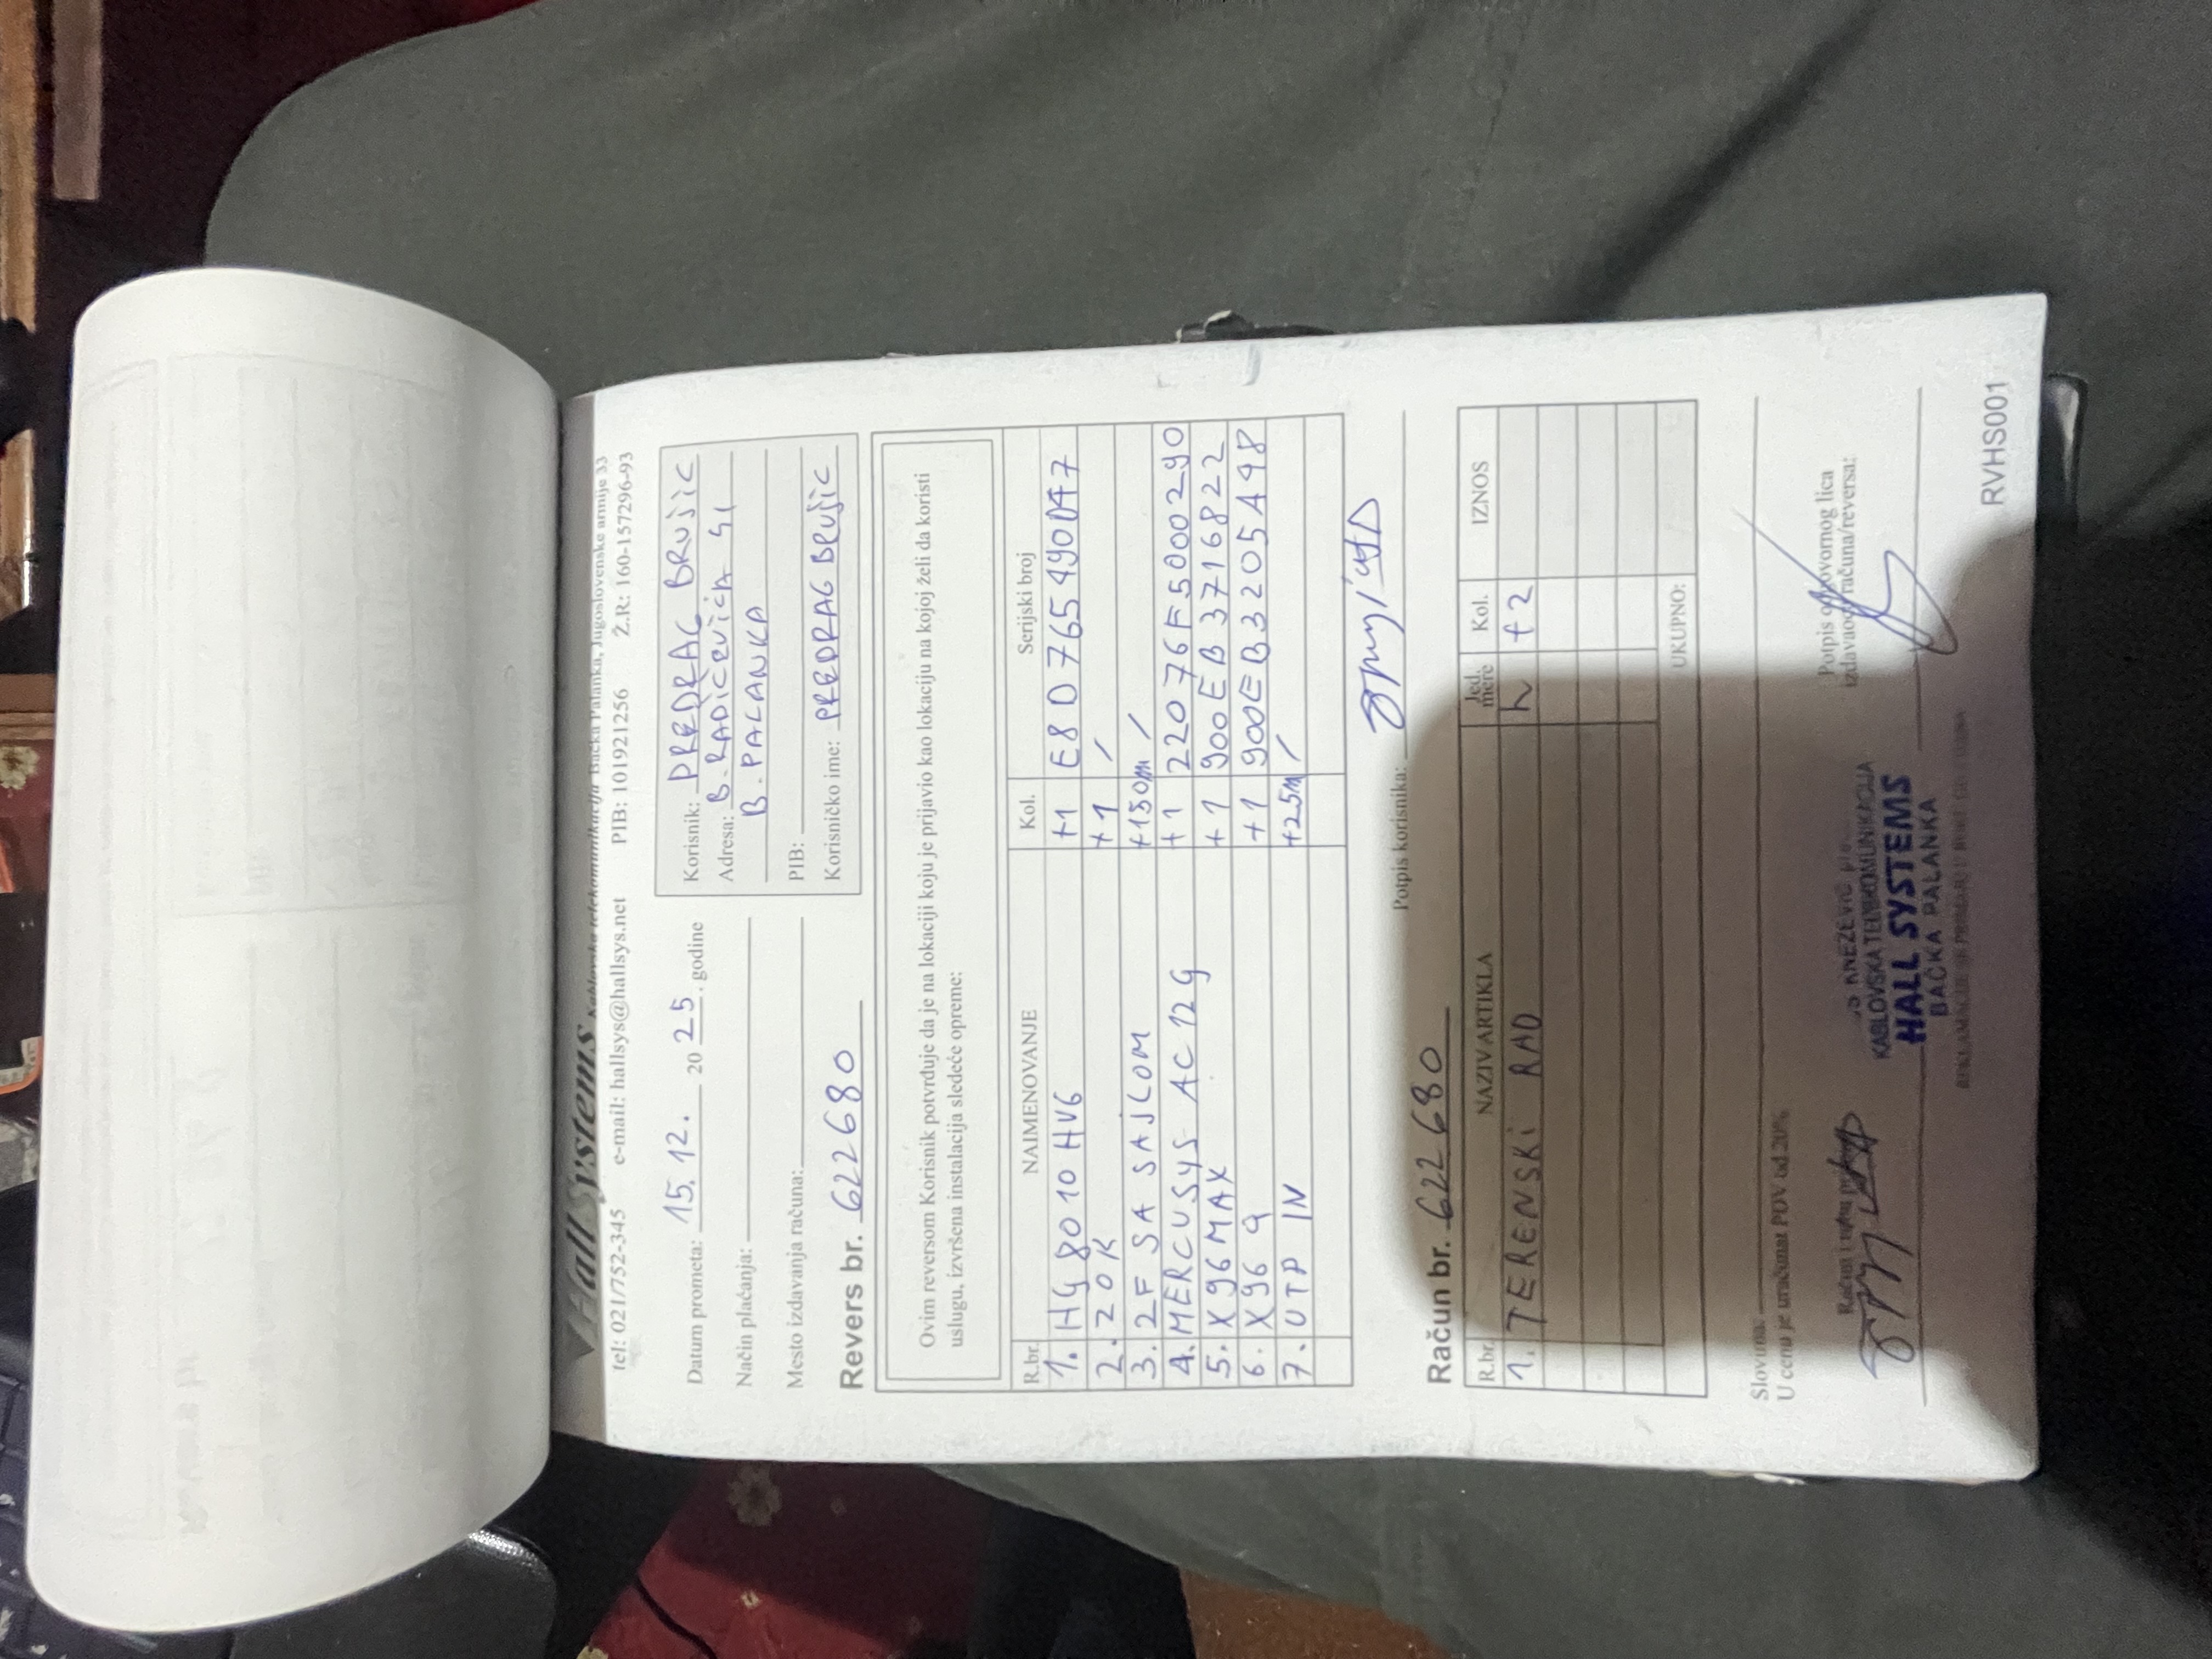 Hall Systems Kablovska telekomunikacija Bačka Palanka, Jugoslovenske armije 33
tel: 021/752-345 e-mail: hallsys@hallsys.net PIB: 101921256 Ž.R.: 160-157296-93
Datum prometa: 15.12. 20 25. godine
Način plaćanja:
Mesto izdavanja računa:
Korisnik: PREDRAG BRUJIĆ
Adresa: B. RADIČEVIĆA 41
B. PALANKA
PIB:
Korisničko ime: PREDRAG BRUJIĆ
Revers br. 622680
Ovim reversom Korisnik potvrđuje da je na lokaciji koju je prijavio kao lokaciju na kojoj želi da koristi
uslugu, izvršena instalacija sledeće opreme:
R.br. NAIMENOVANJE Kol. Serijski broj
1. HG 8010 HV6 +1 E80765490D47
2. ZOK +1 /
3. 2F SA SAJLOM +150m /
4. MERCUSYS AC12G +1 22076F5000290
5. X96MAX +1 900EB3716822
6. X96 9 +1 900EB3205498
7. UTP IN +25m /
Potpis korisnika:
Račun br. 622680
R.br. NAZIV ARTIKLA Jed. mere Kol. IZNOS
1. TERENSKI RAD h +2
UKUPNO:
Slovima:
U cenu je uračunat PDV od 20%
Račun i robu
Potpis odgovornog lica
izdavaoca računa/reversa:
KABLOVSKA TELEKOMUNIKACIJA
HALL SYSTEMS
BAČKA PALANKA
RVHS001